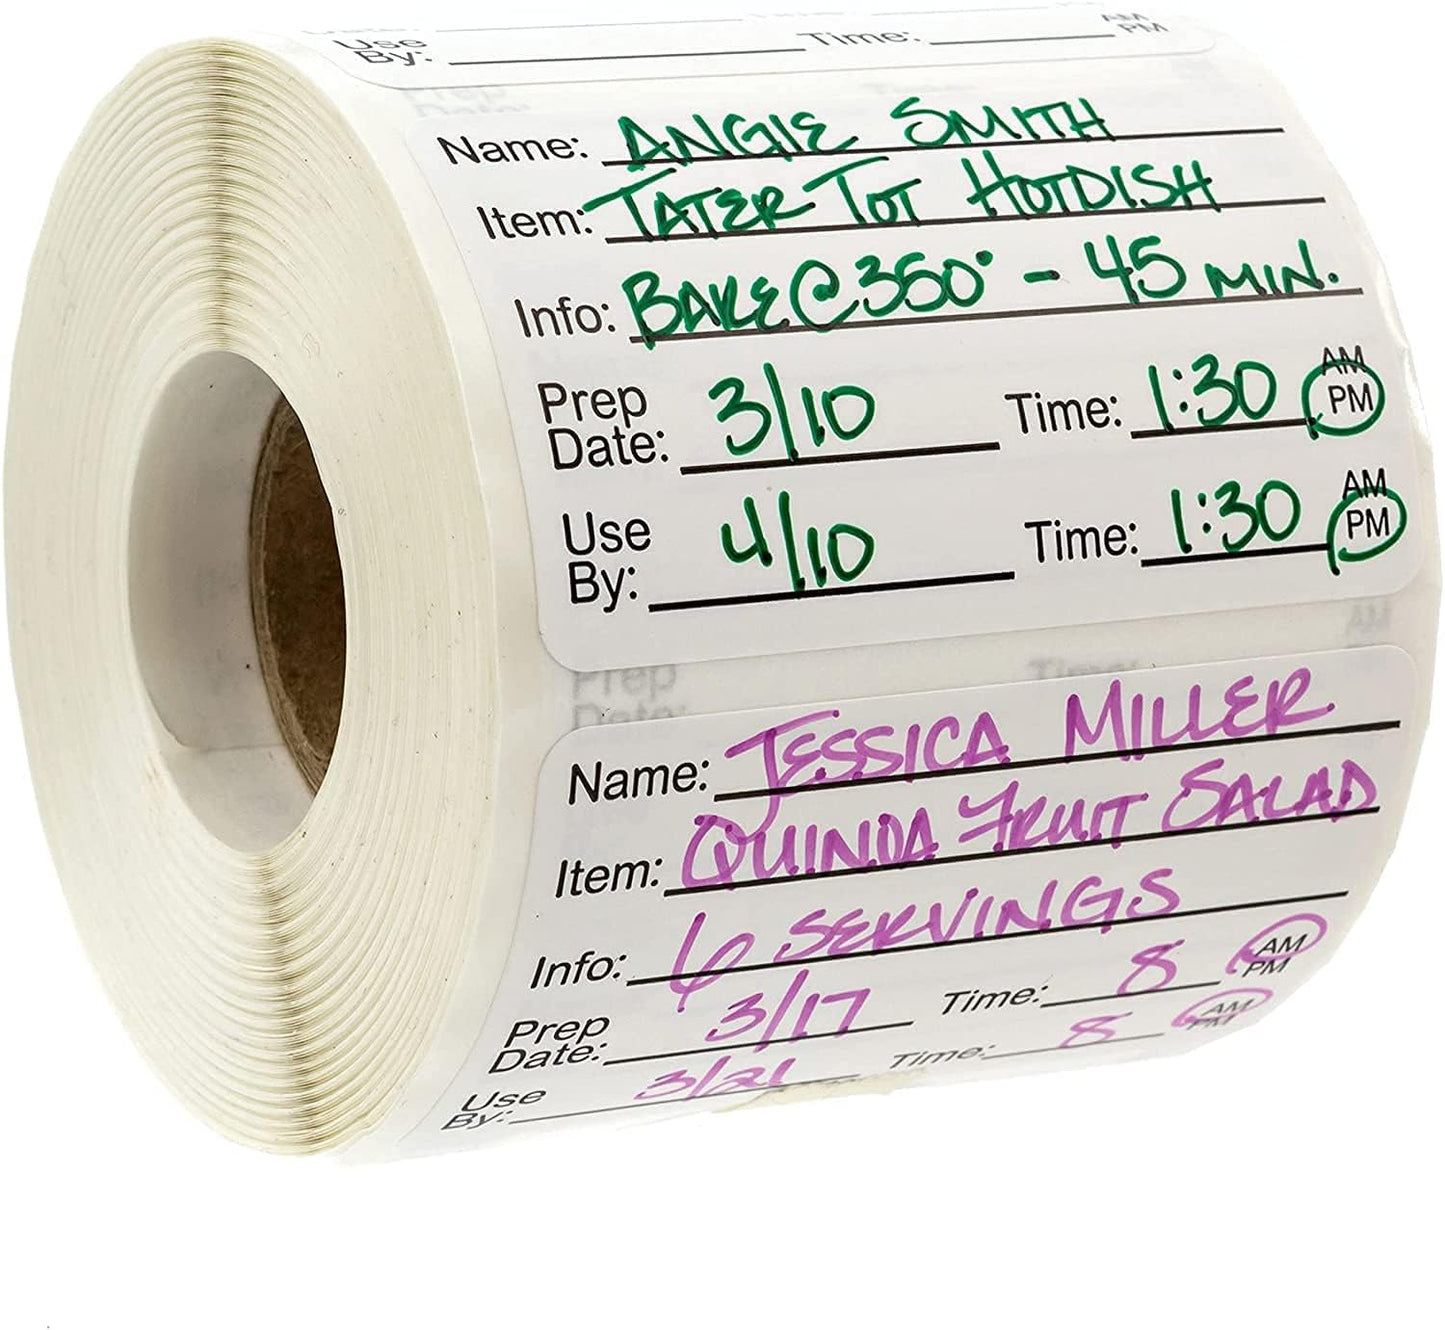 Use By: Time: AM PM
Name: ANGIE SMITH
Item: TATER TOT HOTDISH
Info: BAKE @ 350° - 45 MIN.
Prep Date: 3/10 Time: 1:30 AM PM
Use By: 4/10 Time: 1:30 AM PM
Prep Date: Time: AM
Name: JESSICA MILLER
Item: QUINOA FRUIT SALAD
Info: 6 SERVINGS
Prep Date: 3/17 Time: 8 AM PM
Use By: 3/21 Time: 8 AM PM